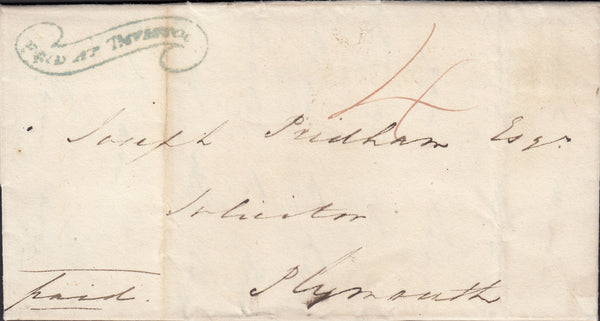 PAID AT TAVISTOCK
4
Joseph Pridham Esqr
Solicitor
paid.
Plymouth